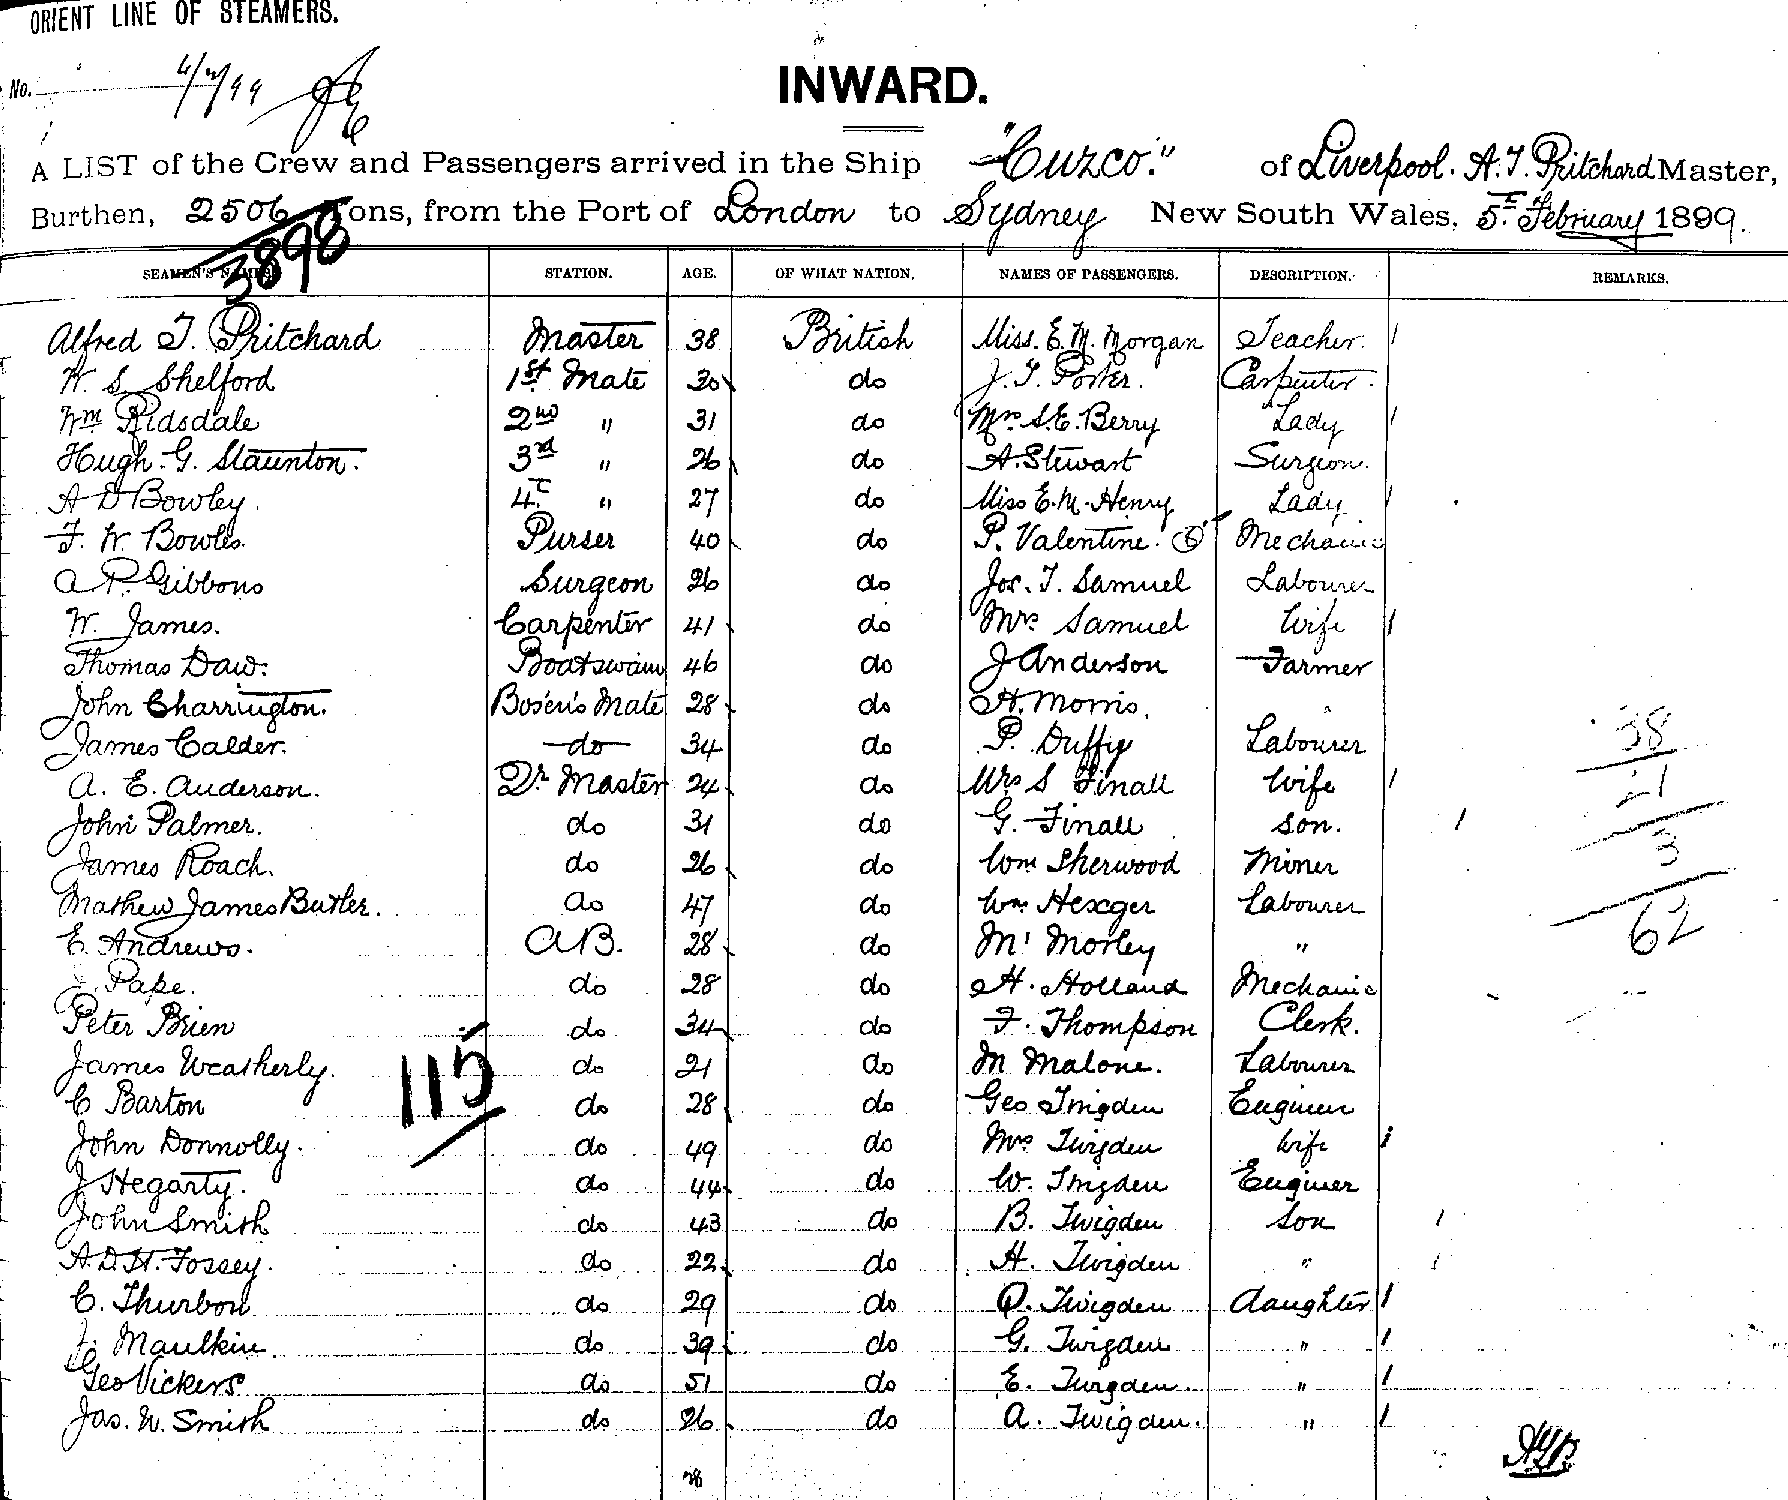 ORIENT LINE OF STEAMERS.
No. 6/2/99
INWARD.
A LIST of the Crew and Passengers arrived in the Ship "Cuzco." of Liverpool. A. T. Pritchard Master,
Burthen, 2506 Tons, from the Port of London to Sydney New South Wales, 5th February 1899.
3898
SEAMEN'S NAMES. STATION. AGE. OF WHAT NATION. NAMES OF PASSENGERS. DESCRIPTION. REMARKS.
Alfred T. Pritchard Master 38 British Miss. E. M. Morgan Teacher.
W. S. Shelford 1st Mate 30 do J. T. Porter. Carpenter.
Wm Ridsdale 2nd " 31 do Mrs. S. E. Berry Lady
Hugh. G. Staunton. 3rd " 26 do A. Stewart Surgeon.
A D Bowley. 4t " 27 do Miss E. M. Henry Lady
F. W. Bowles. Purser 40 do P. Valentine. Mechanic
A. P. Gibbons Surgeon 26 do Jos. T. Samuel Labourer
W. James. Carpenter 41 do Mrs Samuel Wife
Thomas Daw. Boatswain 46 do J Anderson Farmer
John Charrington. Bos'en's Mate 28 do H. Morris.
James Calder. do 34 do P. Duffy Labourer 38
A. E. Anderson. Qr Master 24 do Mrs S Finall Wife 21
John Palmer. do 31 do G. Finall son. 3
James Roach. do 26 do Wm Sherwood Miner
Mathew James Butler. do 47 do Wm Hexger Labourer 62
E. Andrews. AB. 28 do Mr Morley "
Pape. do 28 do H. Holland Mechanic
Peter Brien do 34 do F. Thompson Clerk.
James Weatherly. do 21 do M Malone. Labourer
115
C Barton do 28 do Geo Twigden Engineer
John Donnolly. do 49 do Mrs Twigden Wife
J Hegarty. do 44 do W. Twigden Engineer
John Smith do 43 do B. Twigden Son
A. D. H. Fossey. do 22 do H. Twigden "
C. Thurbon do 29 do Q. Twigden daughter
Maulkin. do 39 do G. Twigden "
Geo Vickers do 51 do E. Twigden. "
Jas. W. Smith do 26 do A. Twigden. "
28